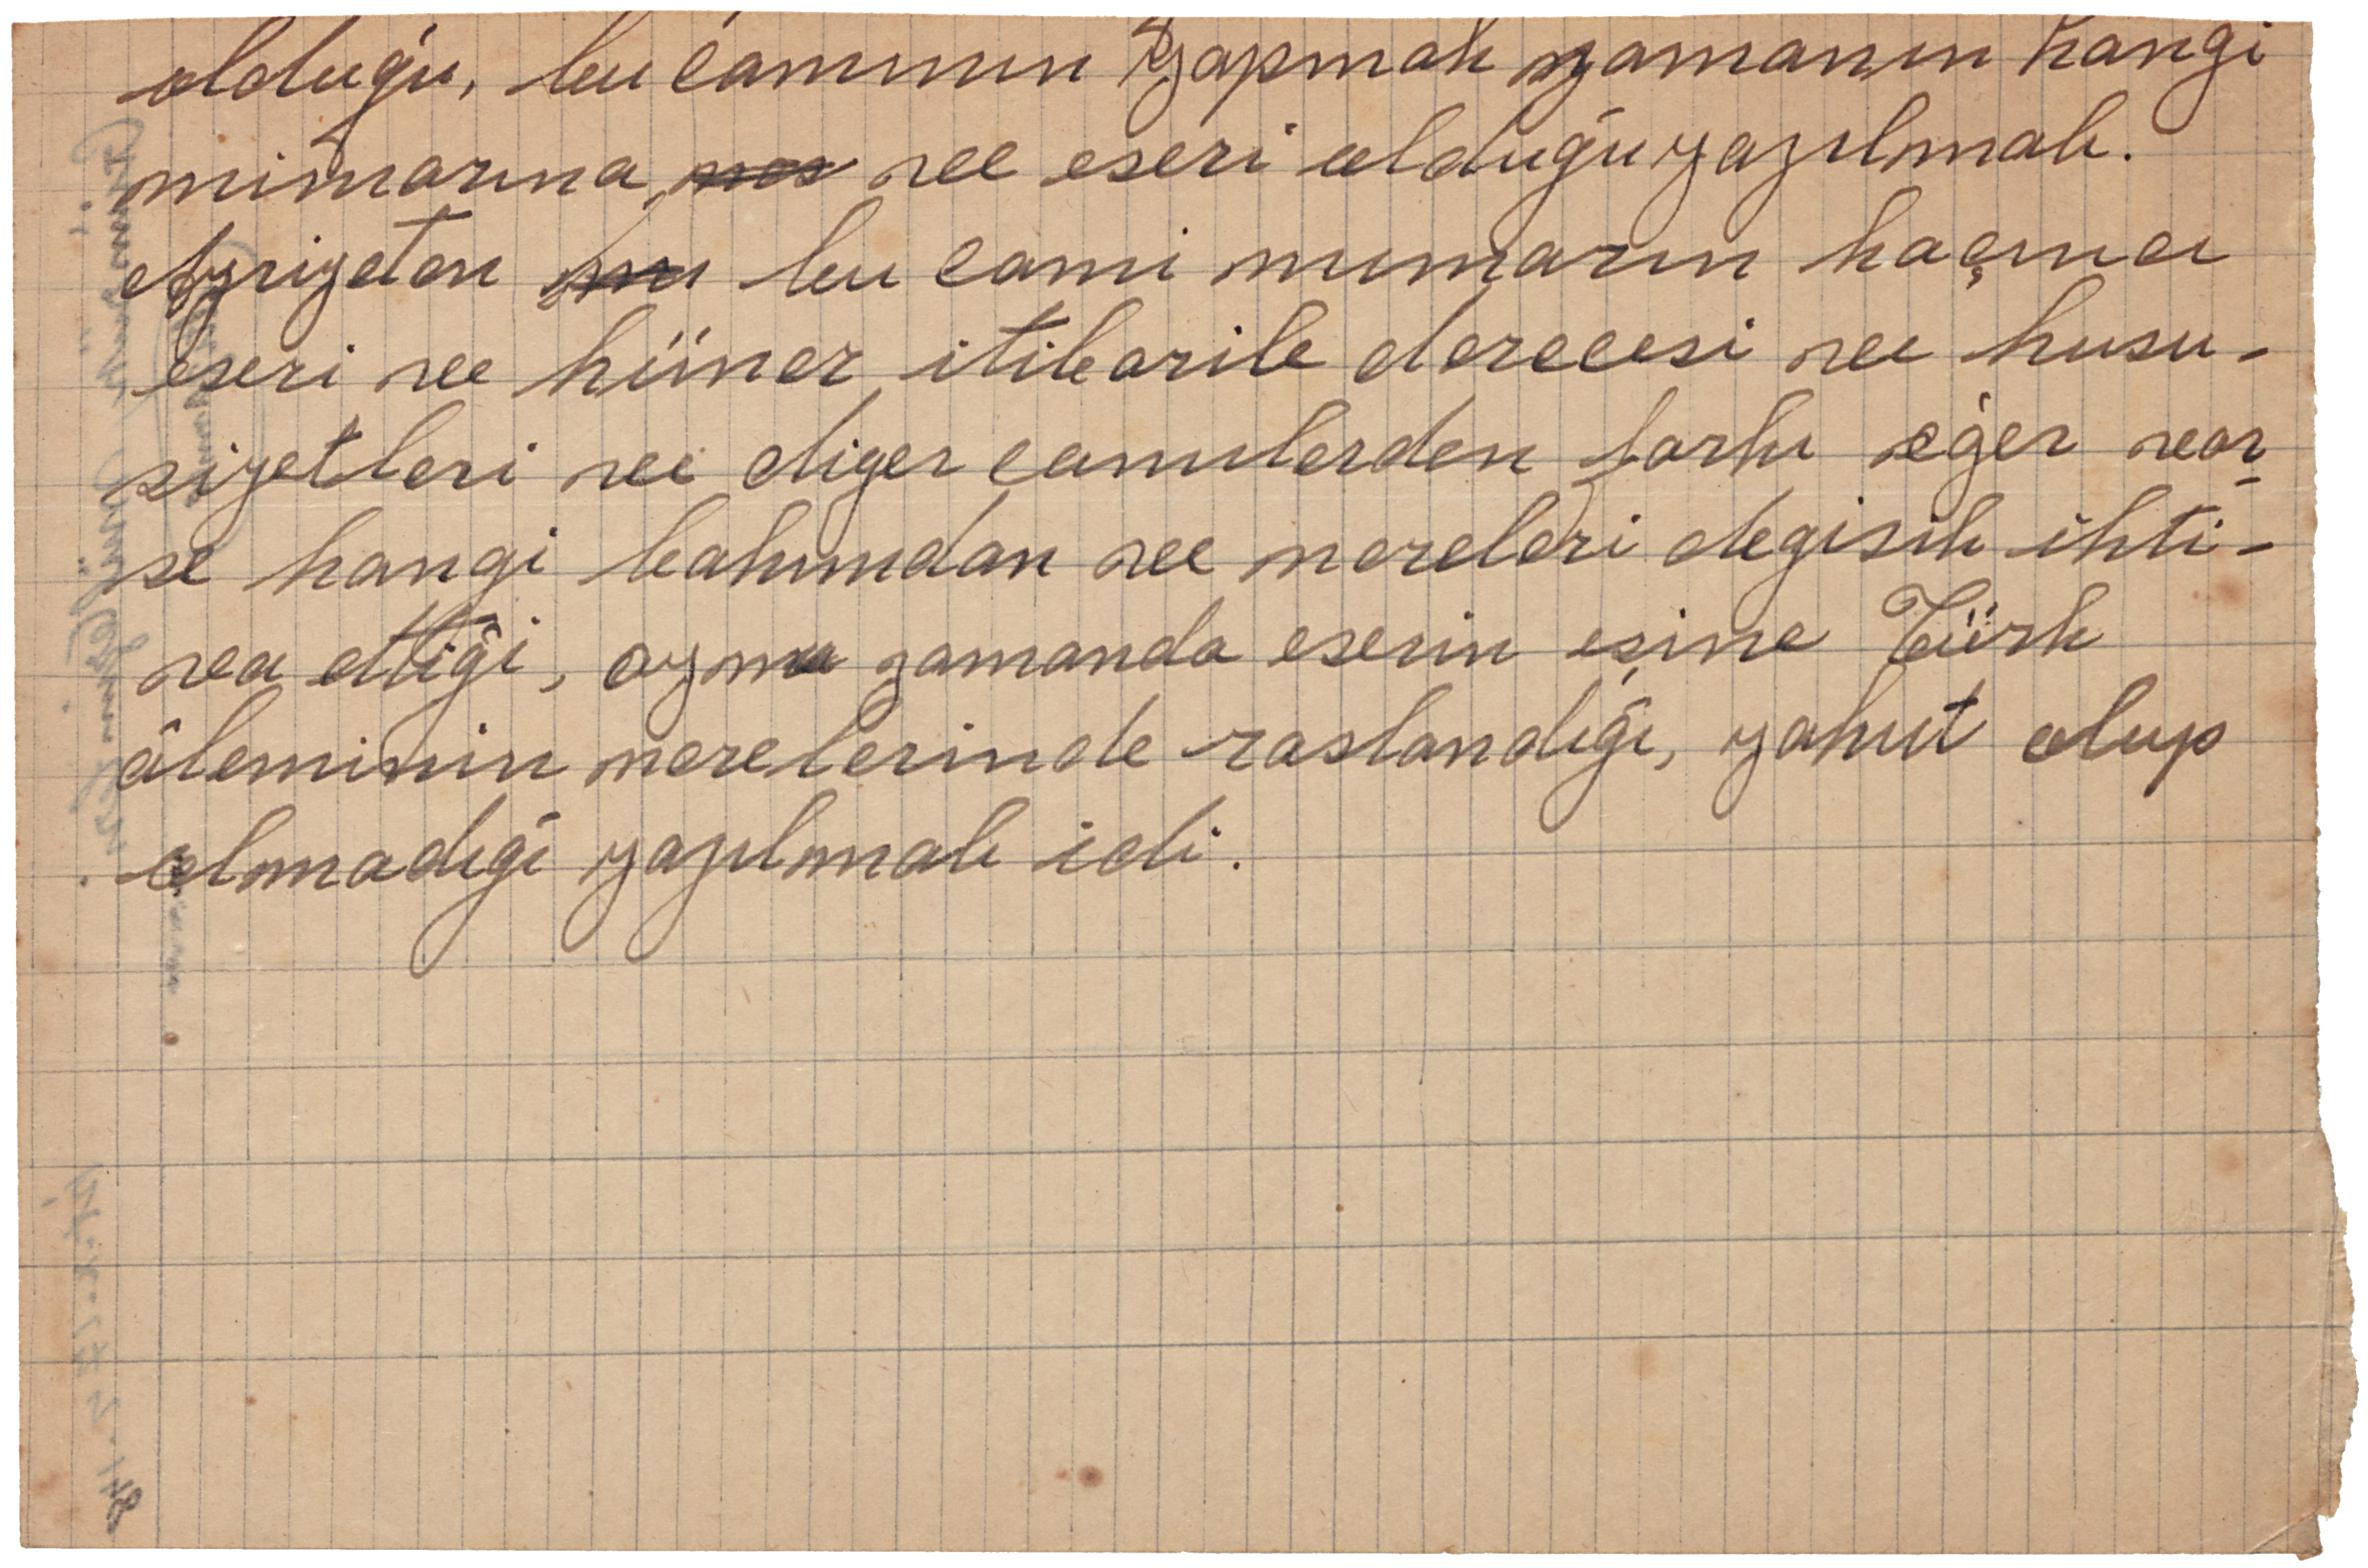 olduğu, bu caminin yapmak zamanın hangi
mimarına ve eseri olduğu yazılmalı.
bu cami mimarın kaçıncı
eseri ve hüner itibarile derecesi ve husu-
siyetleri ve diger camilerden farkı eğer var-
se hangi bakımdan ve nereleri degisik ihti-
va ettiği, aynı zamanda eserin eşine Türk
âleminin nerelerinde raslandığı, yahut olup
olmadığı yazılmalı idi.